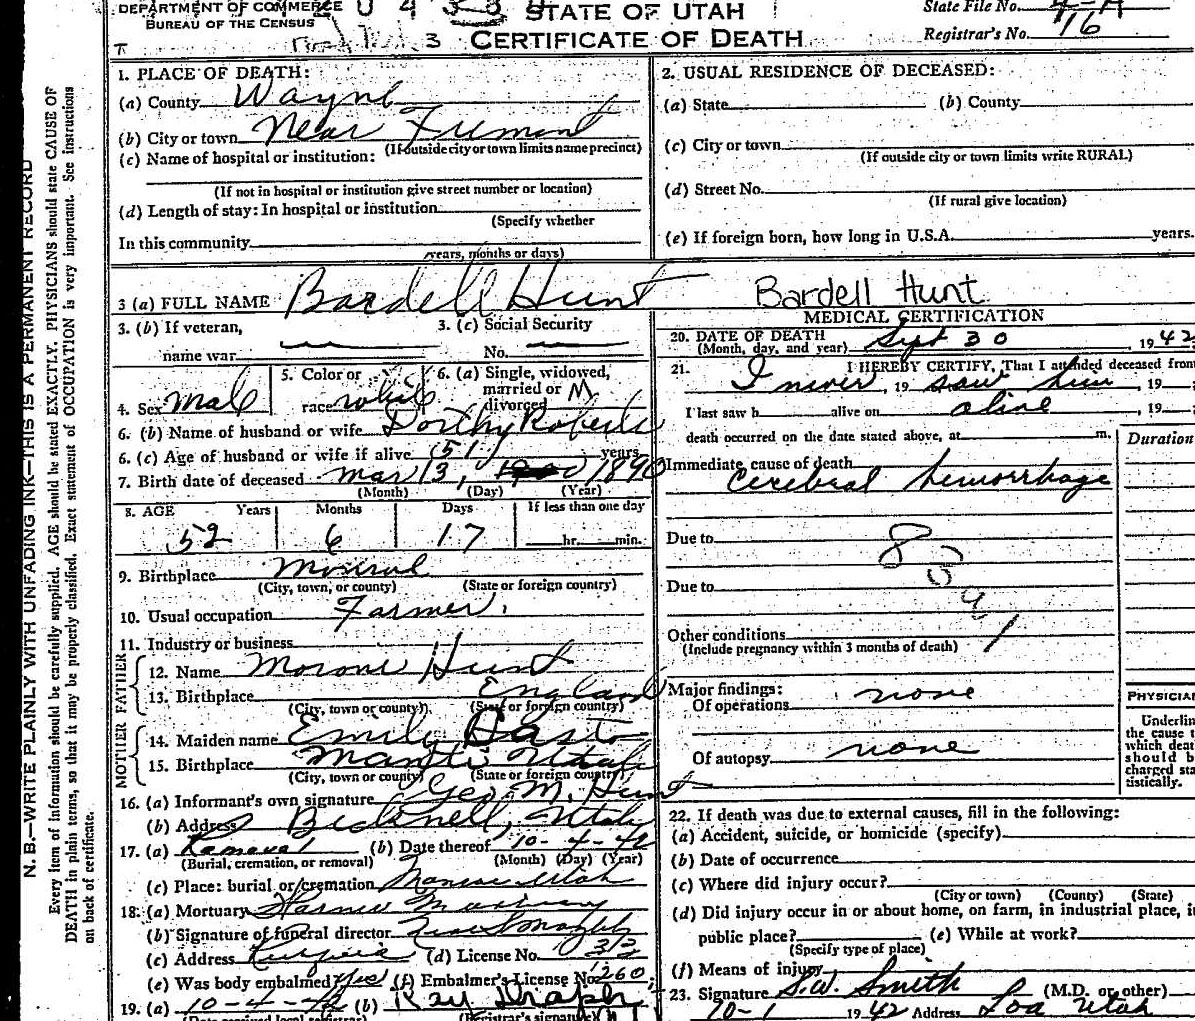 DEPARTMENT OF COMMERCE
BUREAU OF THE CENSUS
STATE OF UTAH
CERTIFICATE OF DEATH
State File No.
Registrar's No. 16
1. PLACE OF DEATH:
(a) County Wayne
(b) City or town Near Fremont
(If outside city or town limits name precinct)
(c) Name of hospital or institution:
(If not in hospital or institution give street number or location)
(d) Length of stay: In hospital or institution
(Specify whether
In this community
years, months or days)
2. USUAL RESIDENCE OF DECEASED:
(a) State (b) County
(c) City or town
(If outside city or town limits write RURAL)
(d) Street No.
(If rural give location)
(e) If foreign born, how long in U.S.A. years.
3 (a) FULL NAME Bardell Hunt Bardell Hunt
3. (b) If veteran,
name war
3. (c) Social Security
No.
4. Sex Male
5. Color or
race white
6. (a) Single, widowed,
married or
divorced M
6. (b) Name of husband or wife Dorthy Roberts
6. (c) Age of husband or wife if alive (51) years
7. Birth date of deceased Mar 13, 1890
(Month) (Day) (Year)
8. AGE Years Months Days If less than one day
52 6 17 hr. min.
9. Birthplace Monroe
(City, town, or county) (State or foreign country)
10. Usual occupation Farmer
11. Industry or business
FATHER
12. Name Morone Hunt
13. Birthplace England
(City, town or county) (State or foreign country)
MOTHER
14. Maiden name Emily
15. Birthplace Manti Utah
(City, town or county) (State or foreign country)
16. (a) Informant's own signature Geo. M. Hunt
(b) Address Bicknell, Utah
17. (a) Removal (b) Date thereof 10-4-42
(Burial, cremation, or removal) (Month) (Day) (Year)
(c) Place: burial or cremation Monroe Utah
18. (a) Mortuary Mortuary
(b) Signature of funeral director
(c) Address (d) License No. 32
(e) Was body embalmed yes (f) Embalmer's License No. 260
19. (a) 10-4-42 (b) Ray
(Registrar's signature)
MEDICAL CERTIFICATION
20. DATE OF DEATH
(Month, day, and year) Sept 30, 1942
21. I HEREBY CERTIFY, That I attended deceased from
I never, 19 saw him, 19
I last saw h alive on alive, 19
death occurred on the date stated above, at m.
Duration
Immediate cause of death
Cerebral hemorrhage
Due to
Due to
Other conditions
(Include pregnancy within 3 months of death)
Major findings:
Of operations none
Of autopsy none
PHYSICIAN
Underlin
the cause t
which deat
should b
charged sta
tistically.
22. If death was due to external causes, fill in the following:
(a) Accident, suicide, or homicide (specify)
(b) Date of occurrence
(c) Where did injury occur?
(City or town) (County) (State)
(d) Did injury occur in or about home, on farm, in industrial place, i
public place? (e) While at work?
(Specify type of place)
(f) Means of injury
23. Signature S.W. Smith (M.D. or other)
10-1 1942 Address Loa Utah
N. B.—WRITE PLAINLY WITH UNFADING INK—THIS IS A PERMANENT RECORD
Every item of information should be carefully supplied. AGE should be stated EXACTLY. PHYSICIANS should state CAUSE OF
DEATH in plain terms, so that it may be properly classified. Exact statement of OCCUPATION is very important. See instructions
on back of certificate.